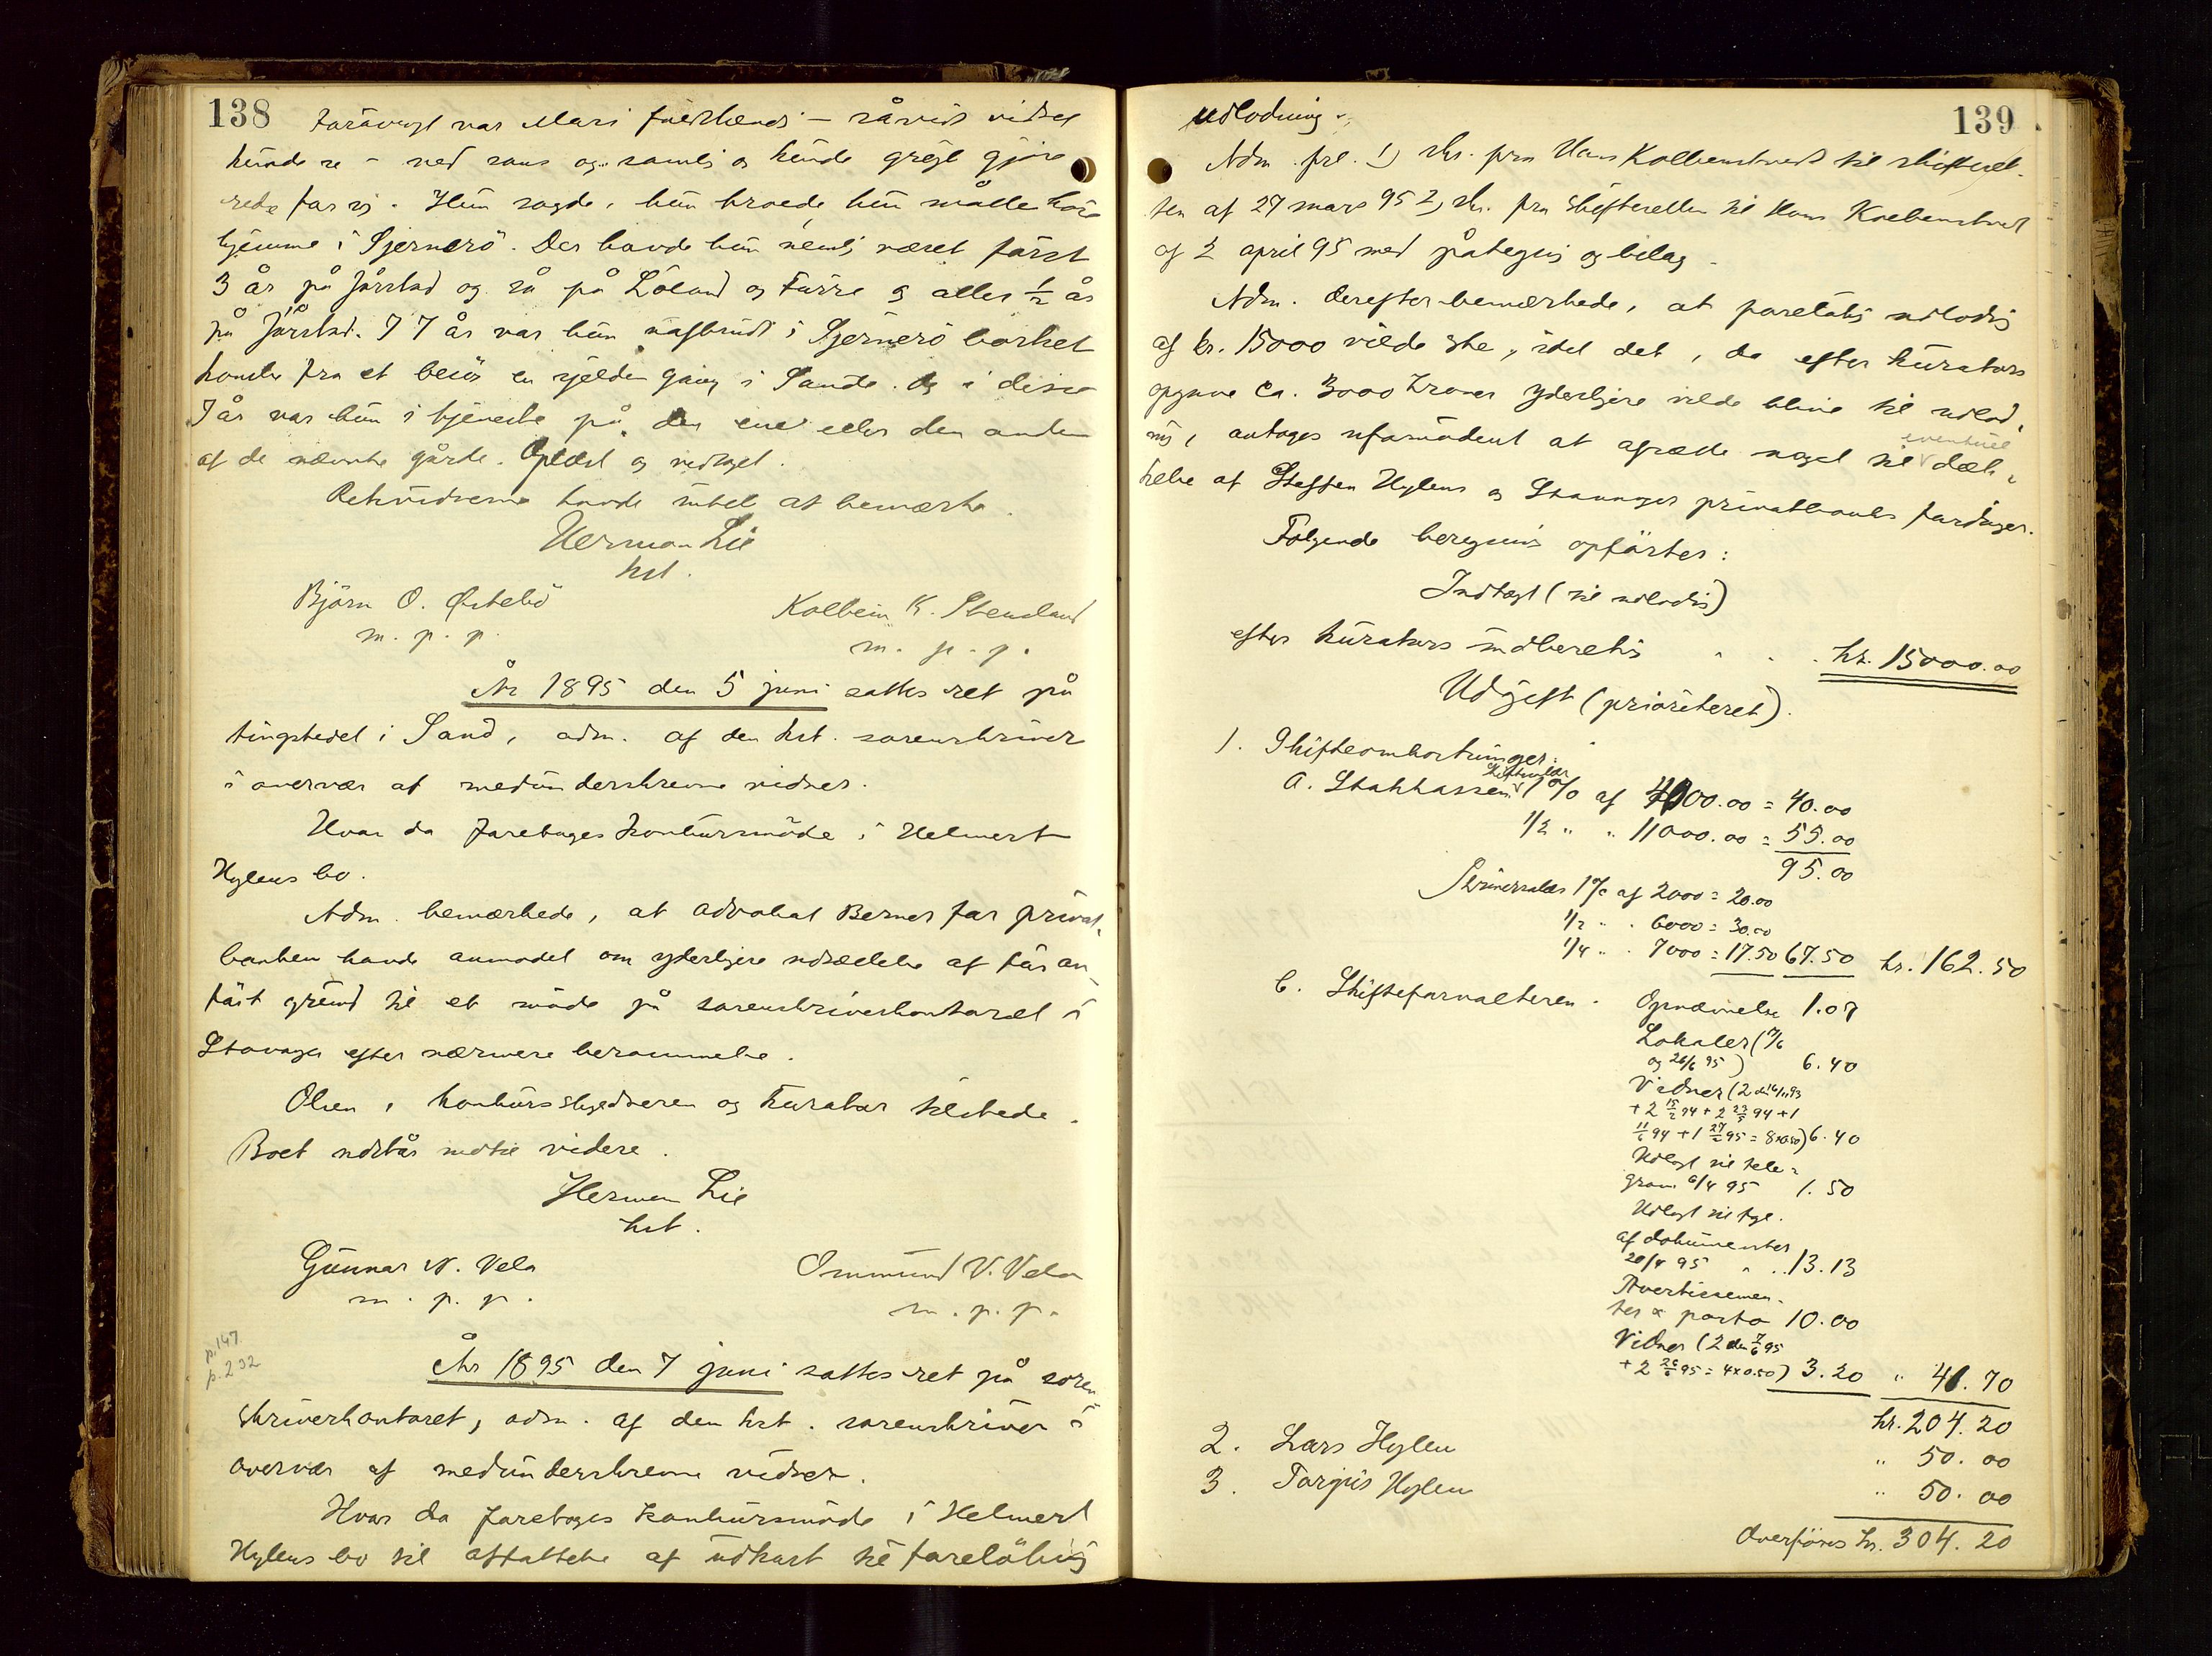 138
forövrigt var Mari fuldstændi - såvidt vidnet
kunde se - ved sans og samli og kunde greit gjøre
rede for sj. Hun sagde, hun troede, hun måtte höre
hjemme i Sjernerö. Der havde hun nemli været först
3 år på Jörstad og så på Löland og Furre og atter ½ år
på Jörstad. I 7 år var hun uafbrudt i Sjernerö borset
hendte fra et besög en sjelden gang i Sande. Og i disse
7 år var hun i tjeneste på den ene eller den anden
af de nævnte gårde. Oplæst og vedtaget.
Retsvidnerne havde intet at bemærke.
Herman Lie
kst.
Björn O. Østebö
m. p. p.
Kolbein K. Stensland
m. p. p.
År 1895 den 5 juni sattes ret på
tingstedet i Sand, adm. af den kst. sorenskriver
i overvær af medunderskrevne vidner.
Hvor da foretoges konkursmöde i Helmert
Hylens bo.
Adm. bemærkede, at advokat Berner for privat-
banken havde anmodet om yderligere udsættelse af
fört grund til et möde på sorenskriverkontoret i
Stavanger efter nærmere berammelse.
Olsen, konkursskyldneren og kurator tilstede.
Boet udstår indtil videre.
Herman Lie
kst.
Gunnar N. Vela
m. p. p.
Ommund V. Vela
m. p. p.
p. 147
p. 232
År 1895 den 7 juni sattes ret på soren
skriverkontoret, adm. af den kst. sorenskriver i
overvær af medunderskrevne vidner.
Hvor da foretoges konkursmöde i Helmert
Hylens bo til affattelse af udkast til forelöbig
139
udlodning.
Adm. frl. 1) skr. fra Hans Kolbenstvedt til skifteret-
ten af 27 mars 95 2) skr. fra skifteretten til Hans Kolbenstvedt
af 2 april 95 med påtegni og bilag.
Adm. derefter bemærkede, at forelöbi udlodni
af kr. 15000 vilde ske, idet det, da efter kurators
opgave ca. 3000 kroner yderligere vilde blive til udlod-
ni, antages ufornödent at afsætte noget til eventuel dæk-
kelse af Steffen Hylens og Stavanger privatbanks fordringer.
Følgende beregni opförtes:
Indtægt (til udlodni)
efter kurators indberetni . . . kr. 15000.00
Udgift (prioriteret).
1. Skifteomkostninger:
a. Statskassen 1% af 4000.00 = 40.00
1/2 " " 11000.00 = 55.00
95.00
Skriversalær 1% af 2000 = 20.00
1/2 " " 6000 = 30.00
1/4 " " 7000 = 17.50 67.50 kr. 162.50
b. Skifteforvalteren. Opnævnelse 1.07
Lokaler (7/6
og 26/6 95) 6.40
Vidner (2 den 16/11 93
+ 2 15/2 94 + 2 23/5 94 + 1
11/6 94 + 1 27/2 95 = 8 x 0.80) 6.40
Udlagt til tele-
gram 6/4 95 1.50
Udlagt til tgl.
af dokumenter
20/4 95 . . . 13.13
Avertissemen-
ter & porto 10.00
Vidner (2 den 7/6 95
+ 2 26/6 95 = 4 x 0.80) 3.20 " 41.70
kr. 204.20
2. Lars Hylen " 50.00
3. Torgius Hylen " 50.00
Overføres kr. 304.20